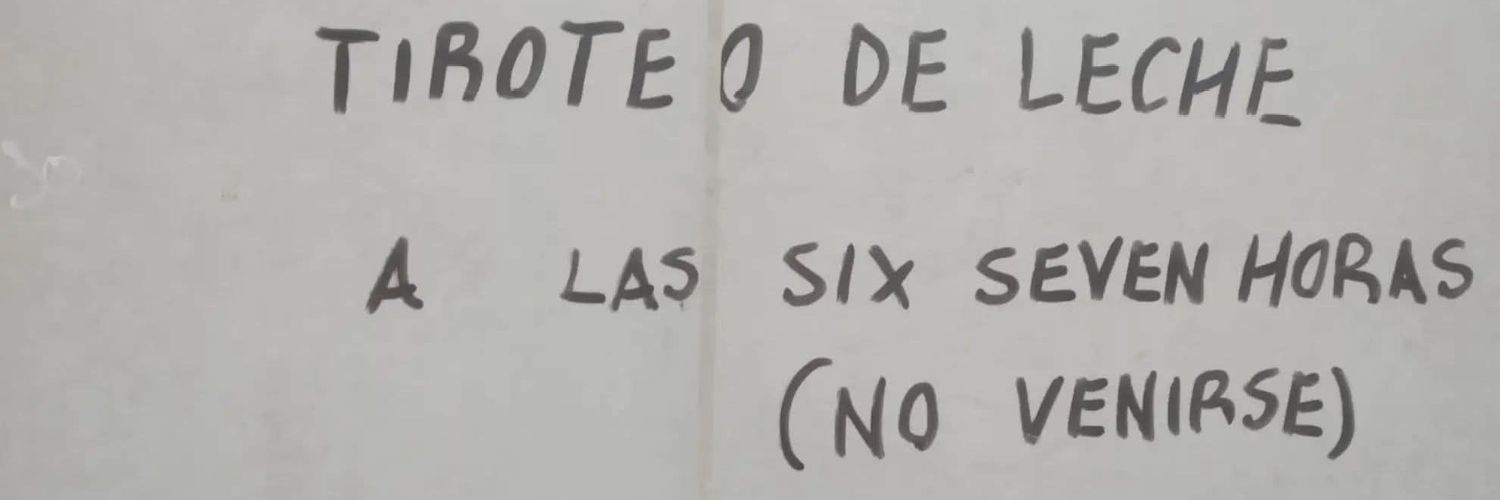 TIROTEO DE LECHE
A LAS SIX SEVEN HORAS
(NO VENIRSE)